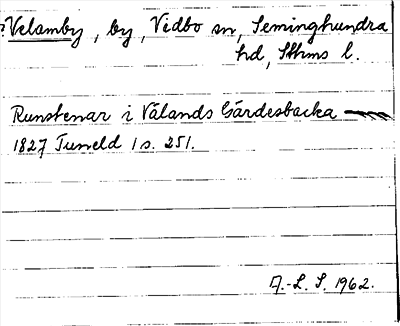 ?Velamby, by, Vidbo sn, Seminghundra
hd, Sthms l.
Runstenar i Vålands Gärdesbacka
1827 Tuneld 1 s. 251.
A.-L. S. 1962.